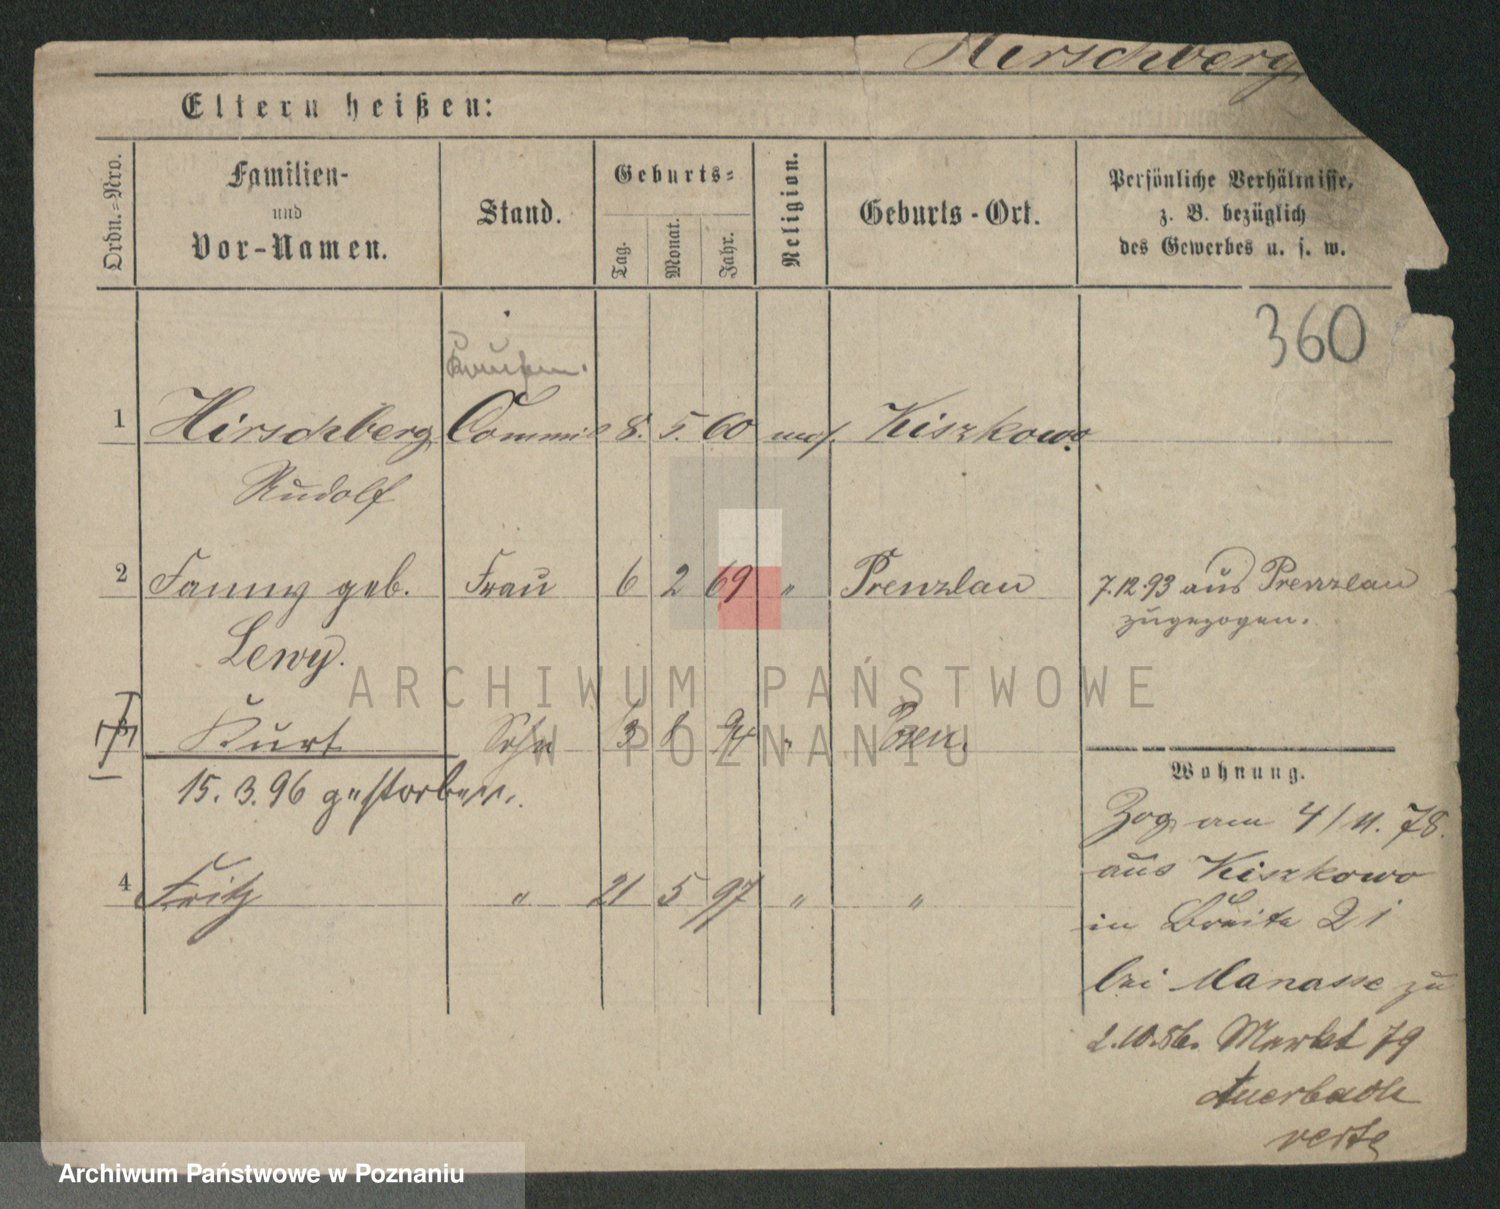 Hirschberg
Eltern heißen:
Ordn.=Nro.
Familien-
und
Vor-Namen.
Stand.
Geburts=
Tag.
Monat.
Jahr.
Religion.
Geburts-Ort.
Persönliche Verhältnisse,
z. B. bezüglich
des Gewerbes u. s. w.
360
Kaufm.
1 Hirschberg Commis 8. 5. 60 mos. Kiszkowo
Rudolf
2 Fanny geb. Frau 6 2 69 " Prenzlau 7.12.93 aus Prenzlau
zugezogen.
Lewy.
Kurt Sohn 3 94 " Posen.
15. 3. 96 gestorben.
Wohnung.
Zog am 4/11. 78.
4 Fritz " 21 5 97 " "
aus Kiszkowo
in Breite 21
bei Manasse zu
2.10.86. Markt 79
Auerbach
verte
ARCHIWUM PAŃSTWOWE
W POZNANIU
Archiwum Państwowe w Poznaniu